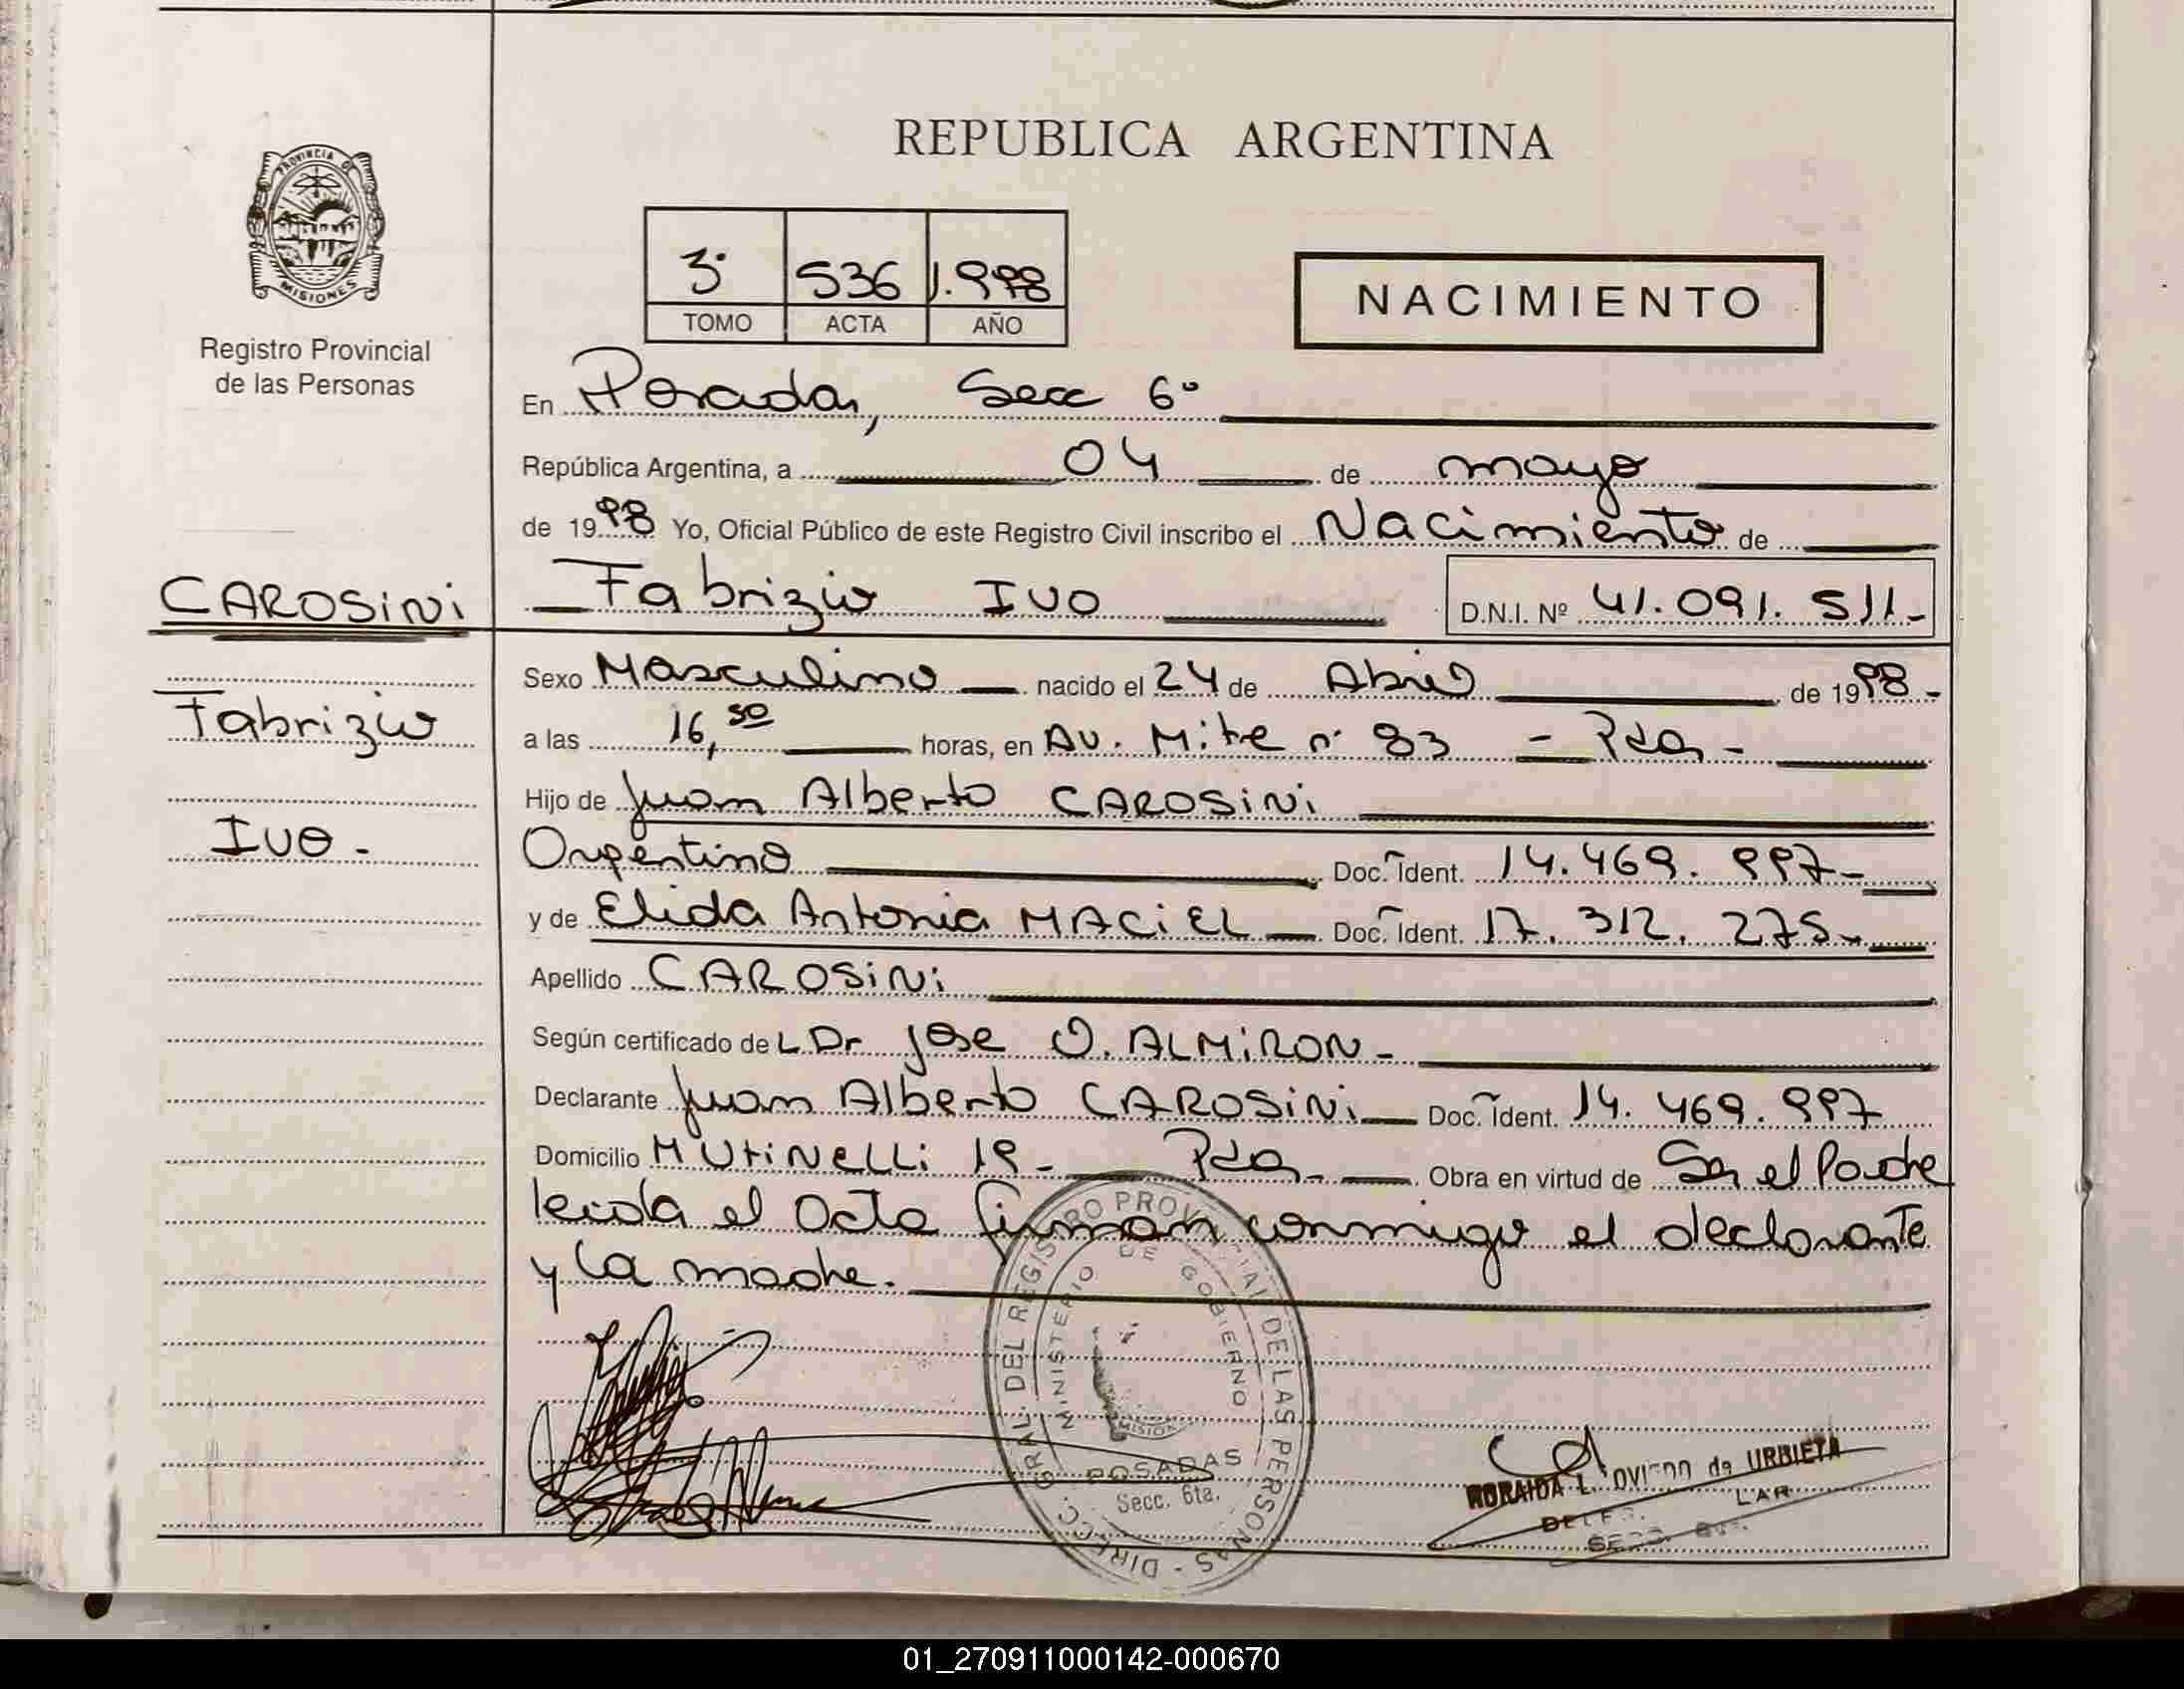 REPUBLICA ARGENTINA
PROVINCIA DE
MISIONES
Registro Provincial
de las Personas
3° 536 1.998
TOMO ACTA AÑO
NACIMIENTO
En Posadas, Secc 6°
República Argentina, a 04 de mayo
de 1998 Yo, Oficial Público de este Registro Civil inscribo el Nacimiento de
CAROSINI
Fabrizio IVO D.N.I. Nº 41.091.511.-
Fabrizio
IVO-
Sexo Masculino nacido el 24 de Abril de 1998.-
a las 16,50 horas, en AV. Mitre n° 83 - Pdas -
Hijo de Juan Alberto CAROSINI
Argentino Doc. Ident. 14.469.997-
y de Elida Antonia MACIEL Doc. Ident. 17.312.275-
Apellido CAROSINI
Según certificado de L Dr Jose O. ALMIRON-
Declarante Juan Alberto CAROSINI Doc. Ident. 14.469.997
Domicilio MUTINELLI 19- Pdas. Obra en virtud de Ser el Padre
leida el Acta firman conmigo el declarante
y la madre.
DIRECC. GRAL. DEL REGISTRO PROVINCIAL DE LAS PERSONAS -
MINISTERIO DE GOBIERNO
POSADAS
Secc. 6ta.
L. OVIEDO de URBIETA
01_270911000142-000670